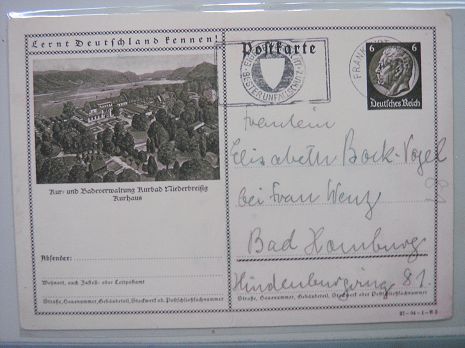 Lernt Deutschland kennen!
Postkarte
BESTER UNFALLSCHUTZ
FRANK
6 6
Deutsches Reich
Kur- und Badeverwaltung Kurbad Niederbreisig
Kurhaus
Absender:
Wohnort, auch Zustell- oder Leitpostamt
Straße, Hausnummer, Gebäudeteil, Stockwerk od. Postschließfachnummer
Fräulein
Elisabeth Bock-Vogel
bei Frau Wenz
Bad Homburg
Hindenburgring 81.
Straße, Hausnummer, Gebäudeteil, Stockwerk oder Postschließfachnummer